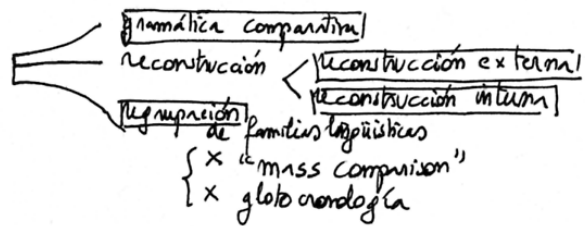 gramática comparativa
reconstrucción
reconstrucción external
reconstrucción interna
regrupación
de familias lingüísticas
x "mass comparison"
x glotocronología